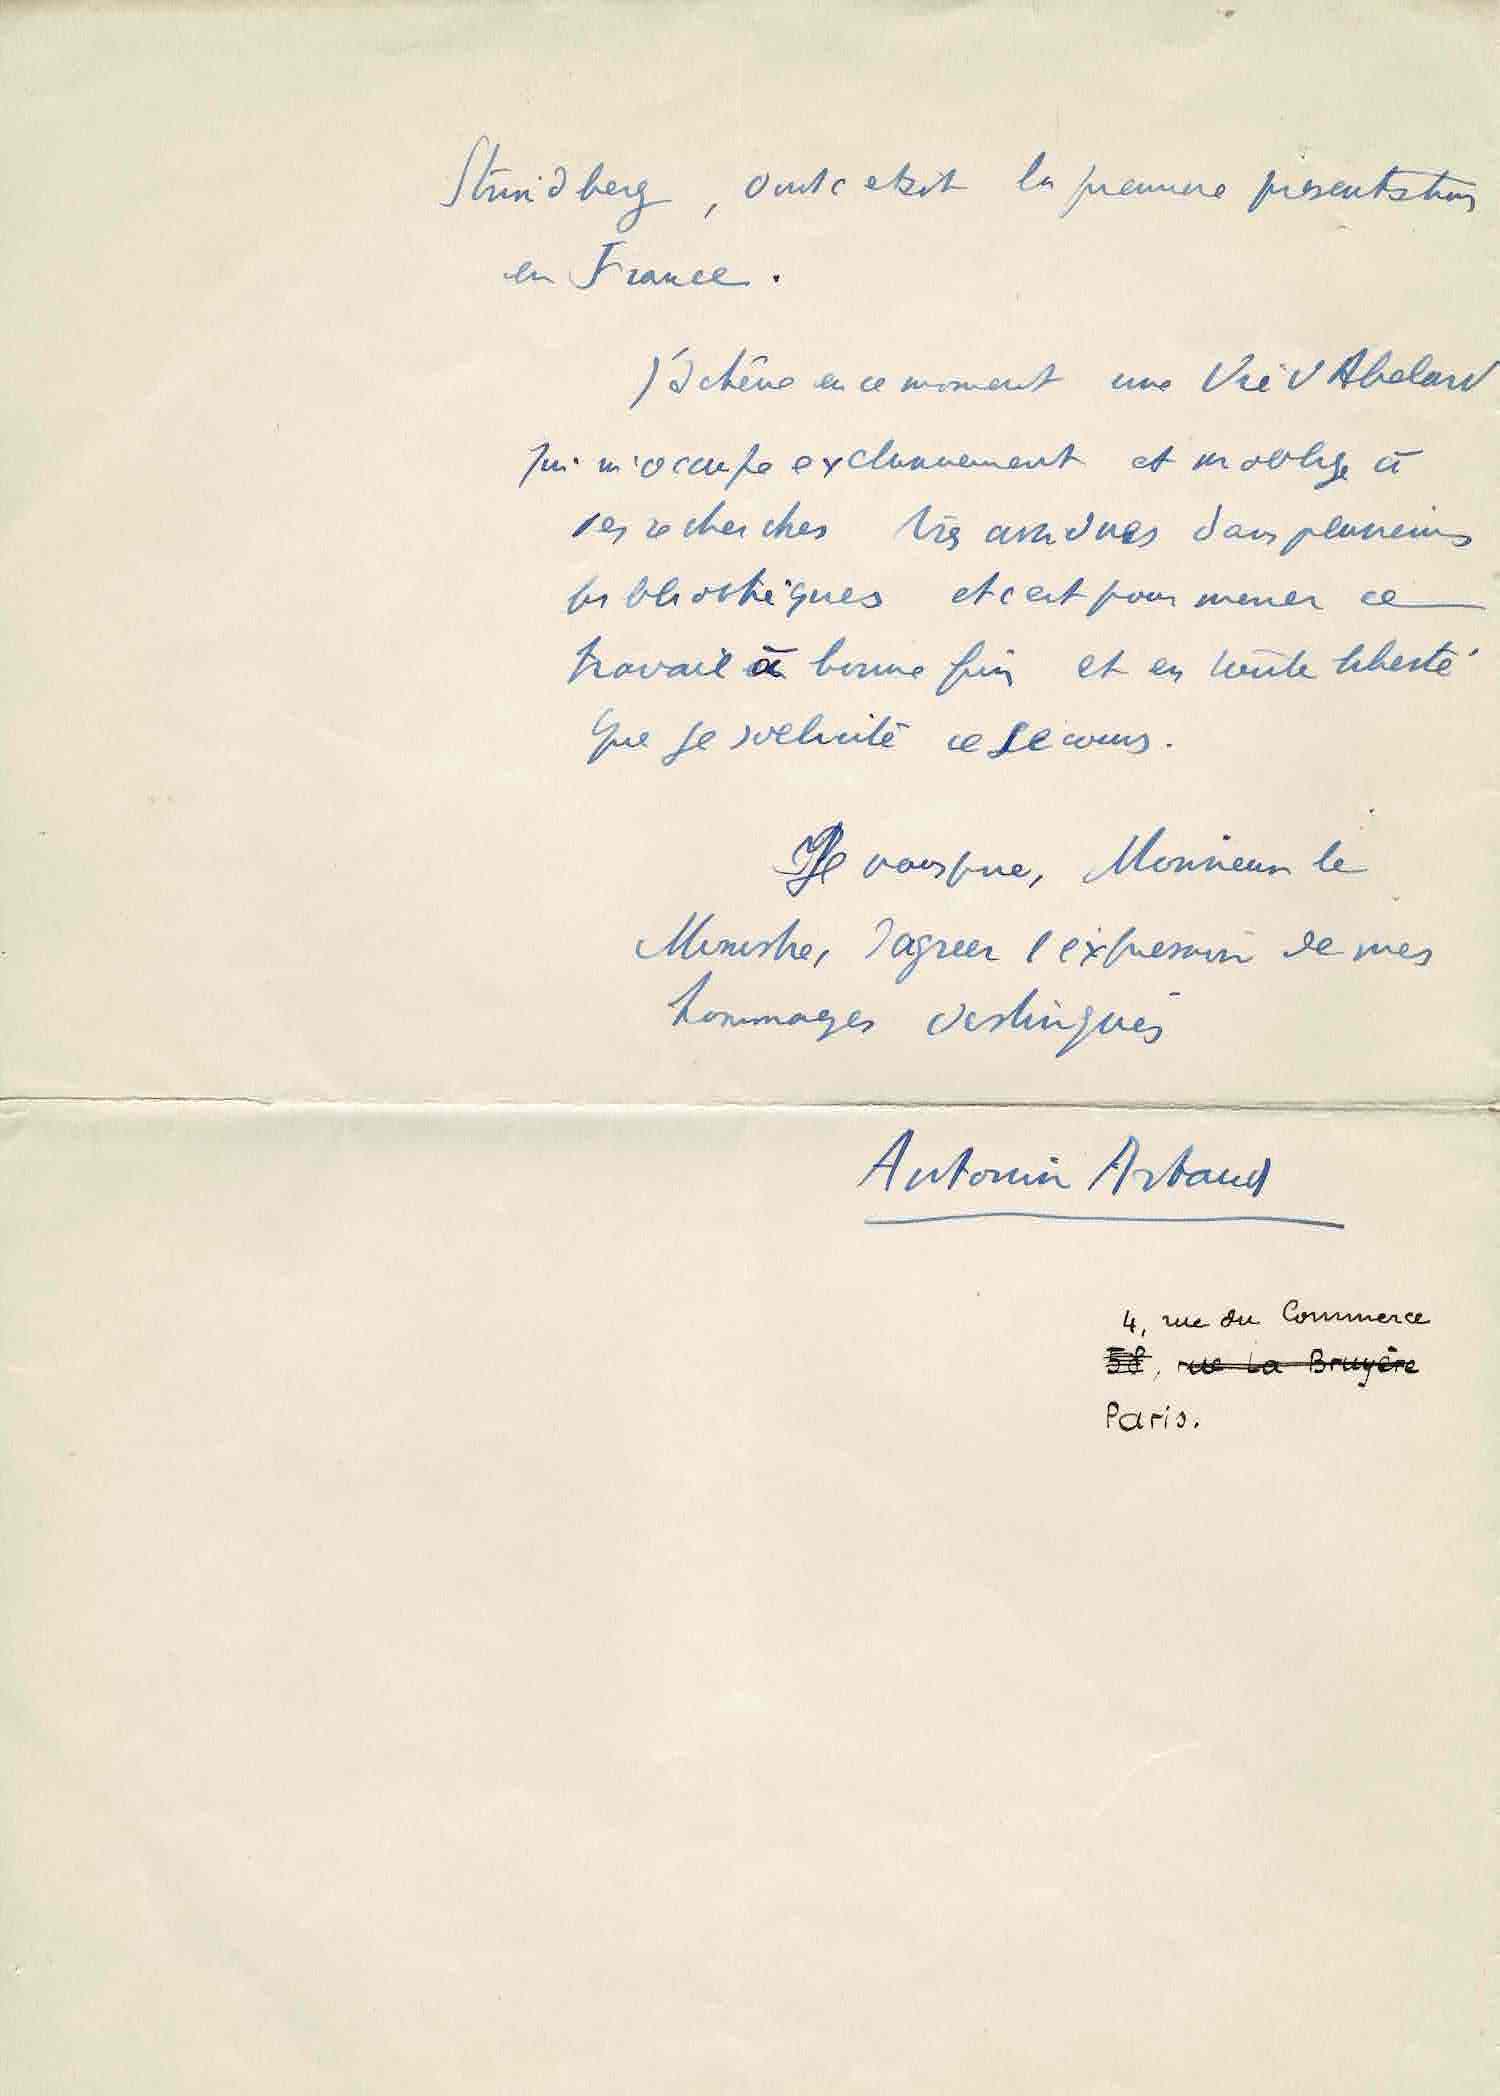 Strindberg, dont c etait la premiere presentation
en France.
J'achève en ce moment une Vie d'Abelard
qui m'occupe exclusivement et m oblige à
des recherches très ardues dans plusieurs
bibliothèques et c est pour mener ce
travail à bonne fin et en toute liberté
que je sollicite ce secours.
Je vous prie, Monsieur le
Ministre, d agreer l expression de mes
hommages distingués
Antonin Artaud
4, rue du Commerce
58, rue La Bruyère
Paris.